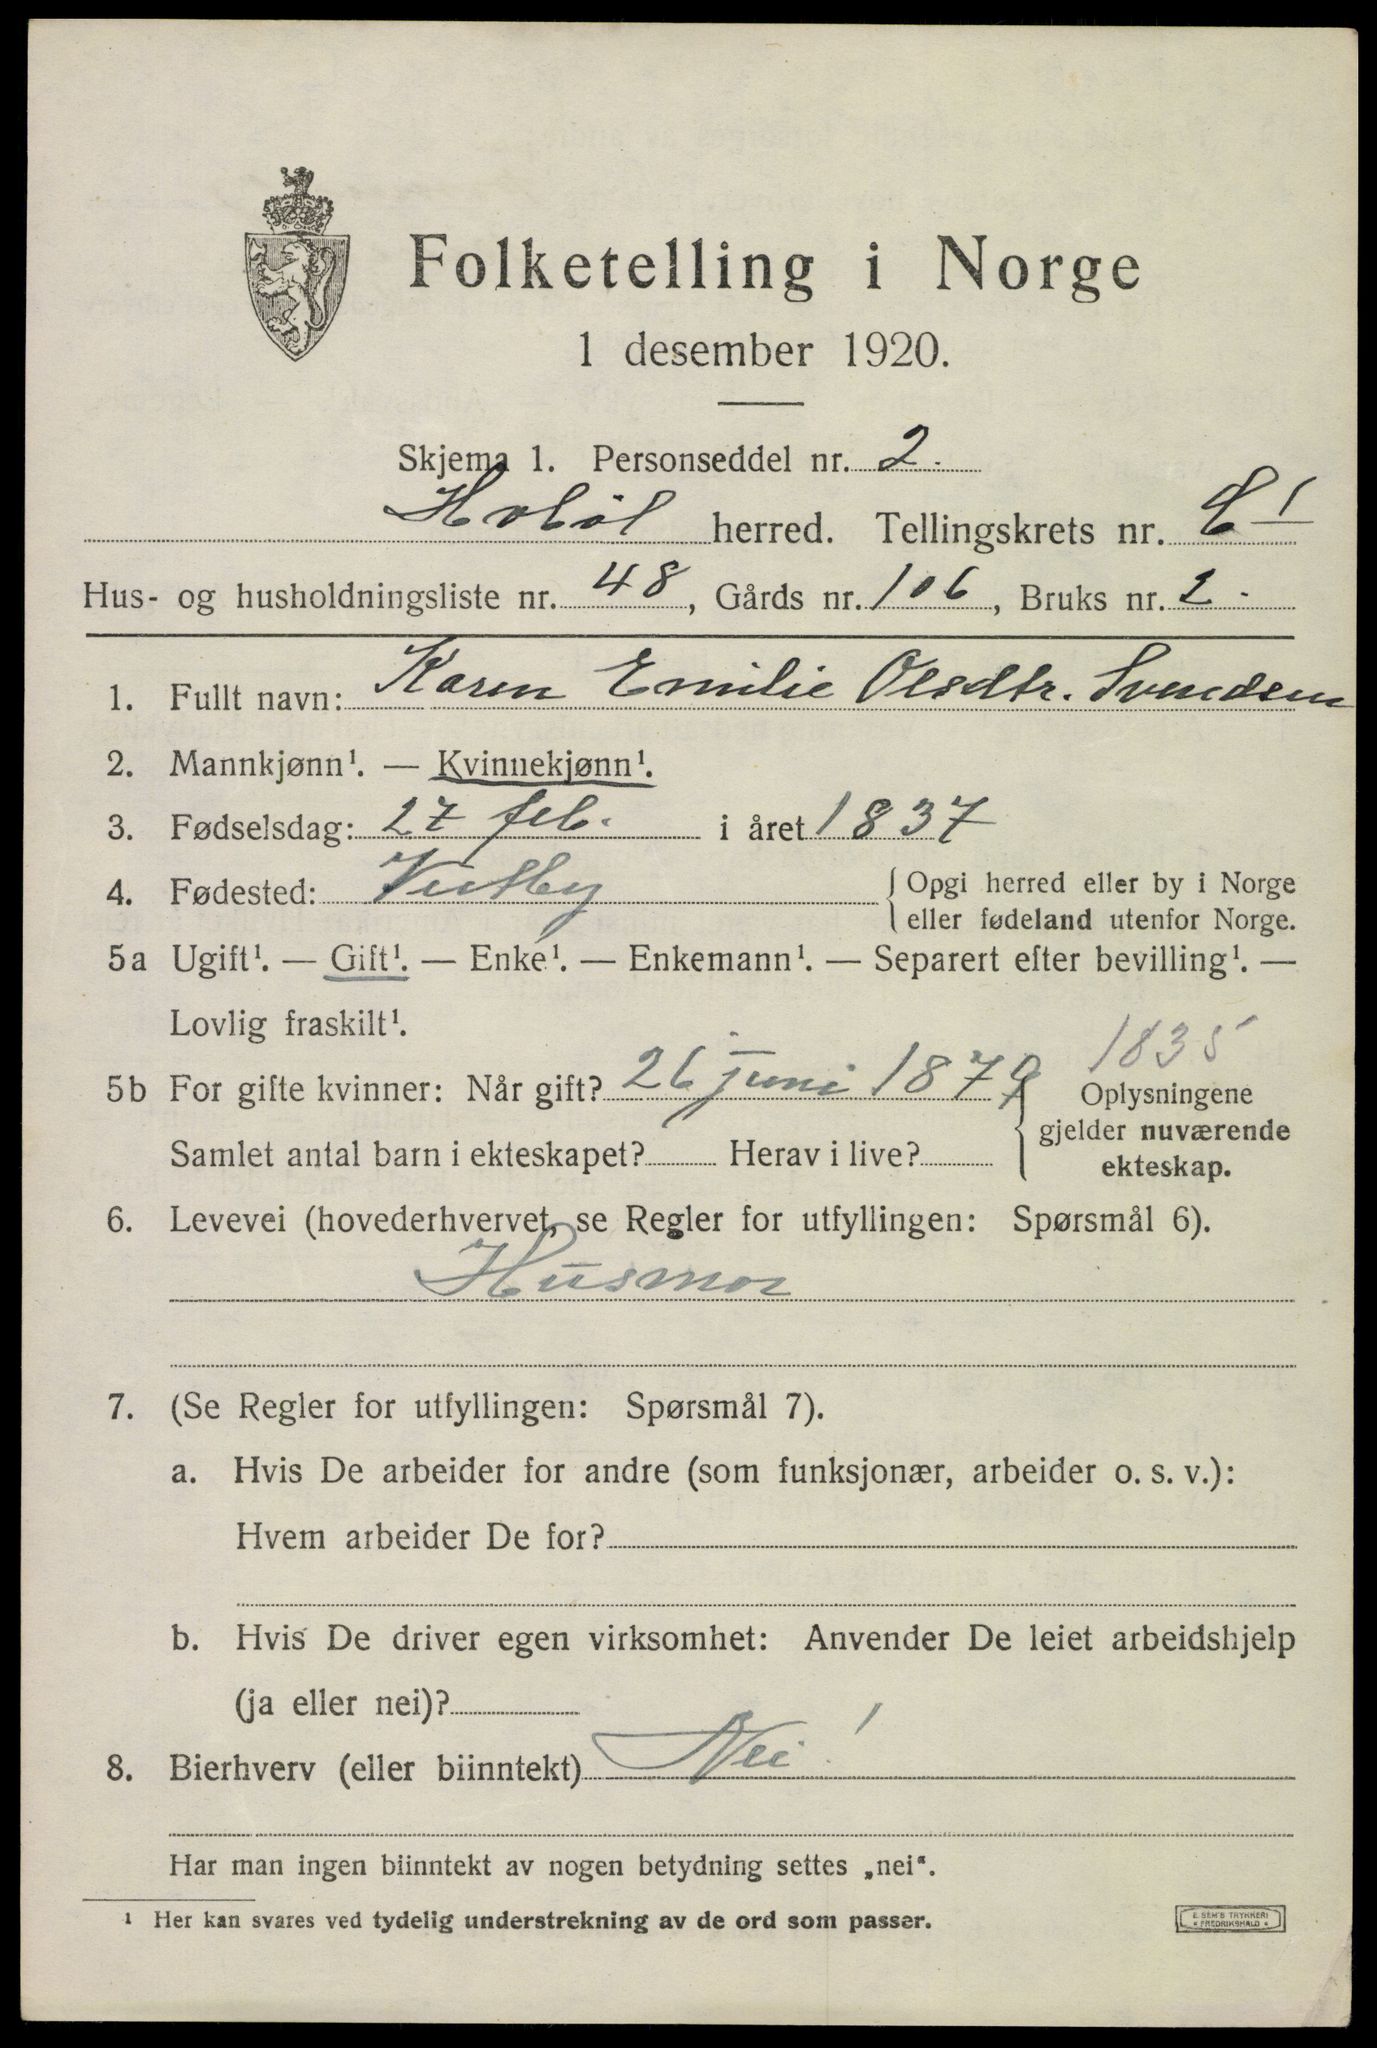 Folketelling i Norge
1 desember 1920.
Skjema 1. Personseddel nr. 2.
Hobøl herred. Tellingskrets nr. 1
Hus- og husholdningsliste nr. 48, Gårds nr. 106, Bruks nr. 2.
1. Fullt navn: Karen Emilie Olsdtr. Svendsen
2. Mannkjønn¹. — Kvinnekjønn¹.
3. Fødselsdag: 27 feb. i året 1837
4. Fødested: Vestby { Opgi herred eller by i Norge
eller fødeland utenfor Norge.
5a Ugift¹. — Gift¹. — Enke¹. — Enkemann¹. — Separert efter bevilling¹. —
Lovlig fraskilt¹.
1835
5b For gifte kvinner: Når gift? 26 juni 1879 { Oplysningene
gjelder nuværende
Samlet antal barn i ekteskapet? Herav i live?
ekteskap.
6. Levevei (hovederhvervet, se Regler for utfyllingen: Spørsmål 6).
Husmor
7. (Se Regler for utfyllingen: Spørsmål 7).
a. Hvis De arbeider for andre (som funksjonær, arbeider o. s. v.):
Hvem arbeider De for?
b. Hvis De driver egen virksomhet: Anvender De leiet arbeidshjelp
(ja eller nei)?
8. Bierhverv (eller biinntekt) Nei!
Har man ingen biinntekt av nogen betydning settes „nei“.
¹ Her kan svares ved tydelig understrekning av de ord som passer.
E. SEM'S TRYKKERI
FREDRIKSHALD